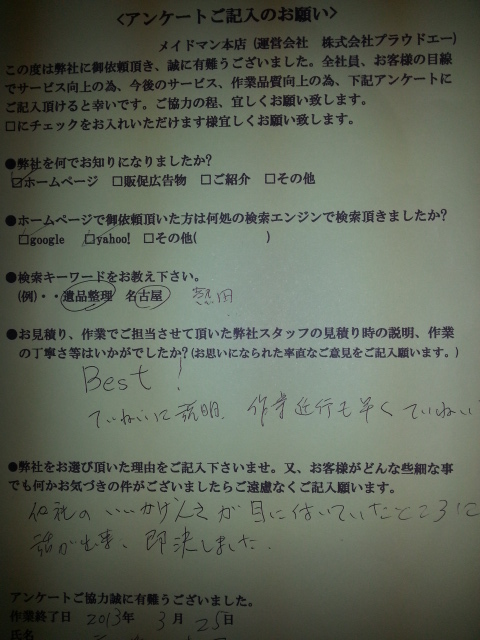 <アンケートご記入のお願い>
メイドマン本店 (運営会社 株式会社プラウドエー)
この度は弊社に御依頼頂き、誠に有難うございました。全社員、お客様の目線
でサービス向上の為、今後のサービス、作業品質向上の為、下記アンケートに
ご記入頂けると幸いです。ご協力の程、宜しくお願い致します。
□にチェックをお入れいただけます様宜しくお願い致します。
●弊社を何でお知りになりましたか?
☑ホームページ □販促広告物 □ご紹介 □その他
●ホームページで御依頼頂いた方は何処の検索エンジンで検索頂きましたか?
□google ☑yahoo! □その他( )
●検索キーワードをお教え下さい。
(例)・・遺品整理 名古屋 熱田
●お見積り、作業でご担当させて頂いた弊社スタッフの見積り時の説明、作業
の丁寧さ等はいかがでしたか?(お思いになられた率直なご意見をご記入願います。)
Best!
ていねいに説明、作業進行も早くていねい
●弊社をお選び頂いた理由をご記入下さいませ。又、お客様がどんな些細な事
でも何かお気づきの件がございましたらご遠慮なくご記入願います。
他社のいいかげんさが目に付いていたところに
話が出来、即決しました.
アンケートご協力誠に有難うございました。
作業終了日 2013年 3月 25日
氏名